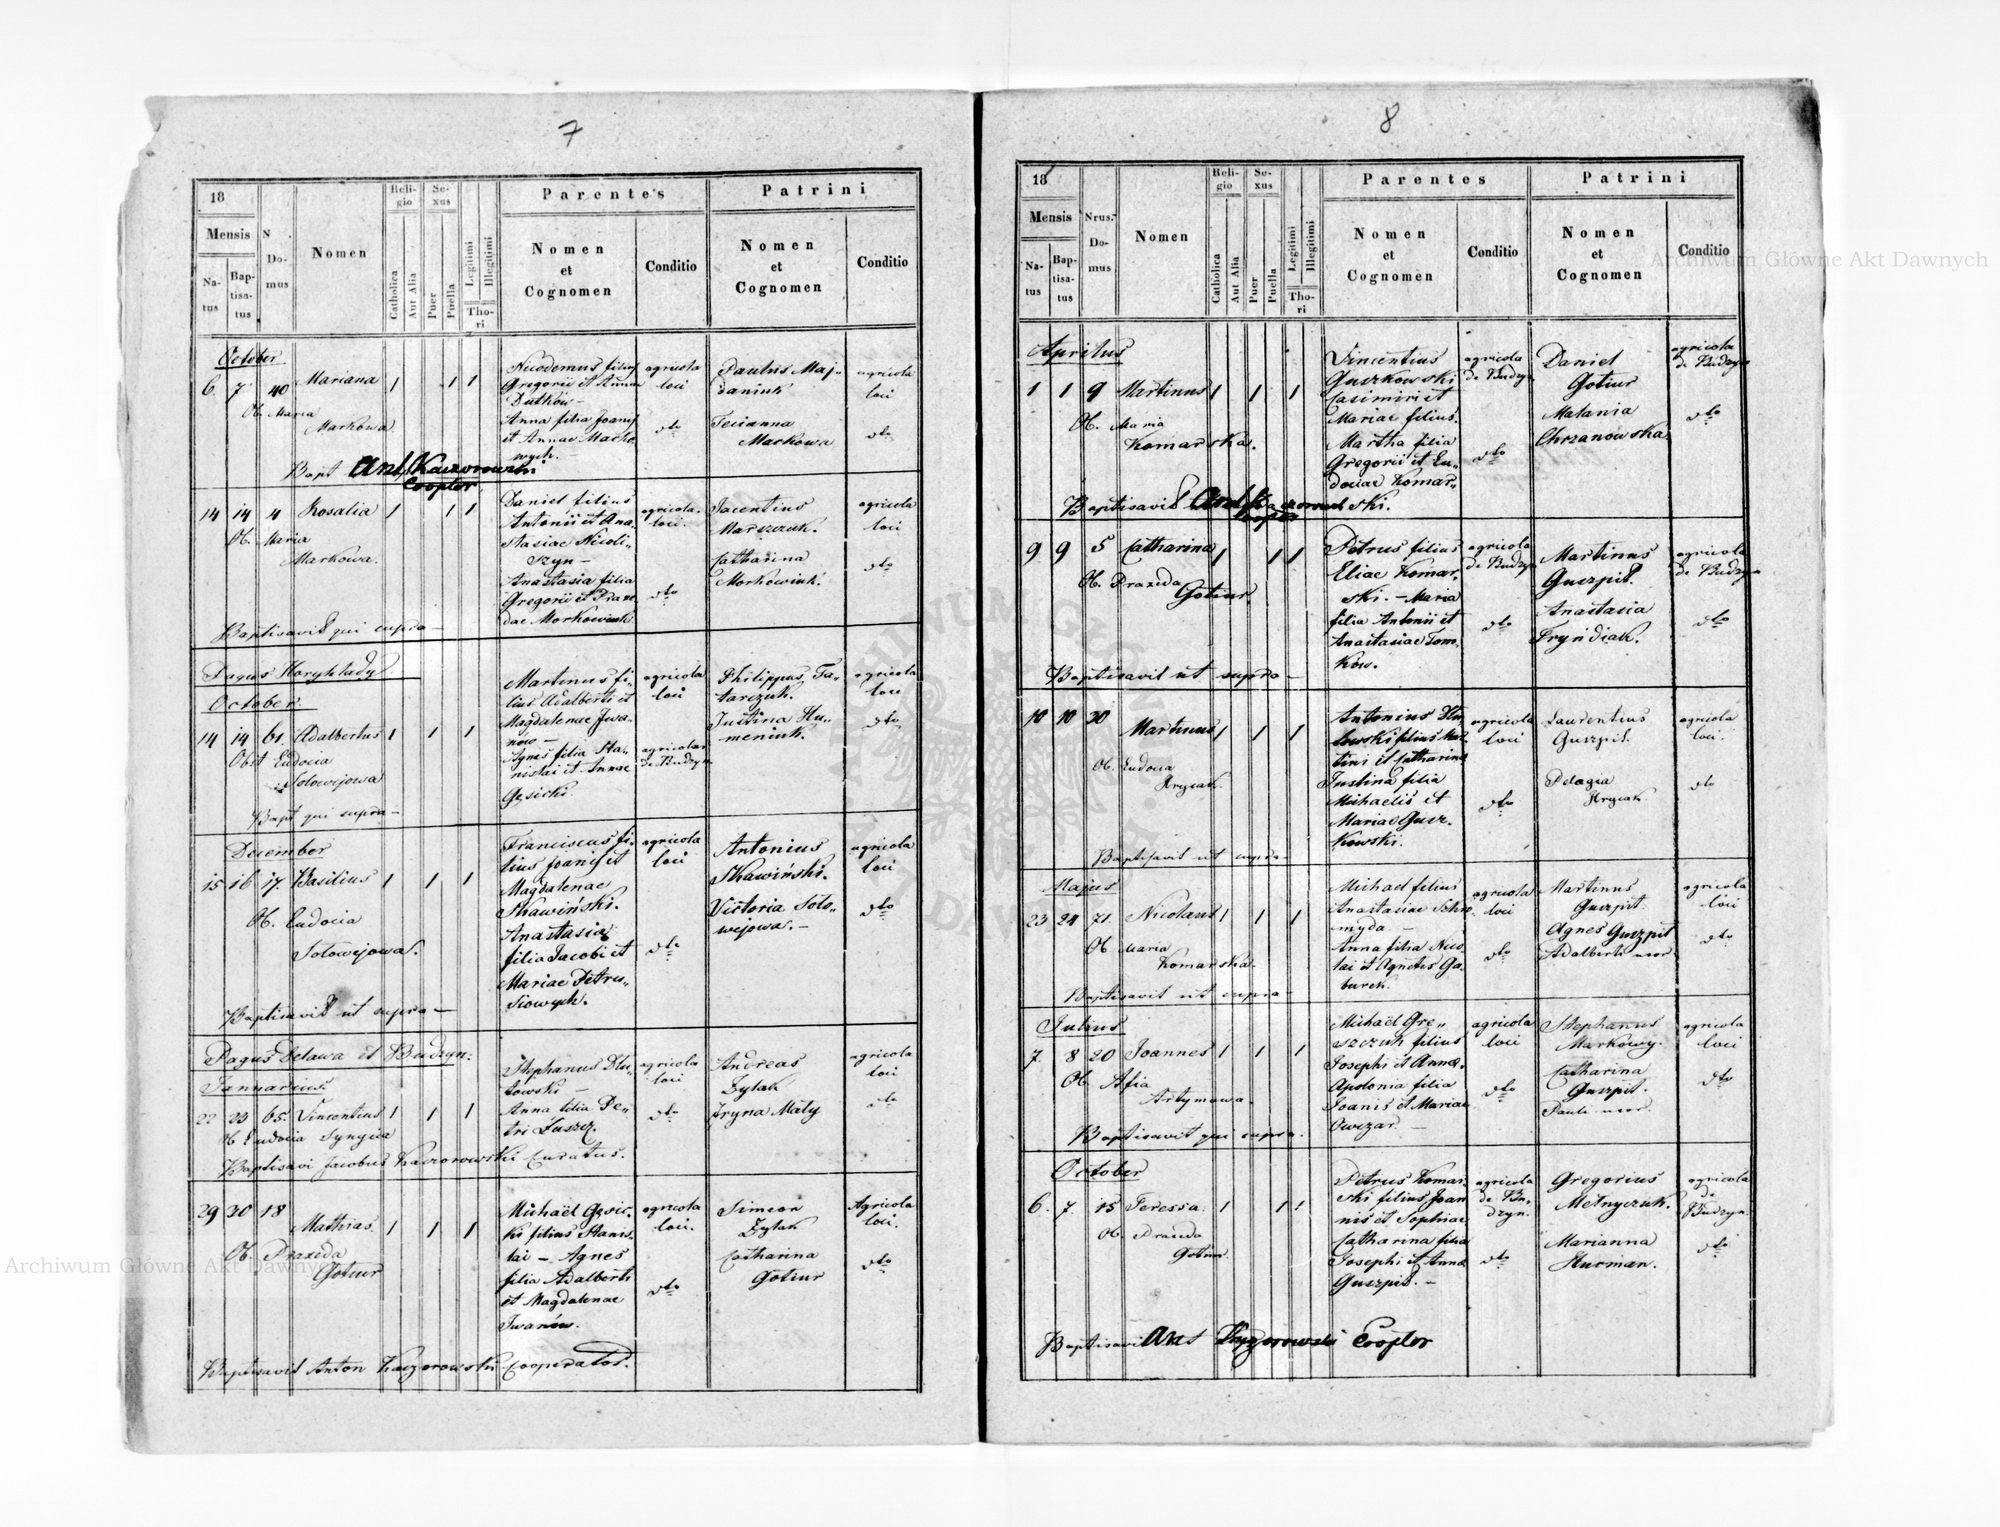 7
18
Mensis
Natus
Baptisatus
N Domus
Nomen
Religio
Catholica
Aut Alia
Sexus
Puer
Puella
Legitimi
Illegitimi
Thori
Parentes
Nomen et Cognomen
Conditio
Patrini
Nomen et Cognomen
Conditio
October
6 7 40 Mariana 1 1 1
Ob. Maria
Markowa
Nicodemus filius
Gregorii et Anna
Dutków –
Anna filia Joannis
et Annae Marko
wych. –
agricola
loci
dto
Paulus Maj-
daniuk
Markowa
agricola
loci
dto
Bapt Ant Kaczorowski
Cooptor
14 14 4 Rosalia 1 1 1
Ob. Maria
Markowa.
Daniel filius
Antonii et Ana
stasiae Nicoli-
szyn –
Anastasia filia
Gregorii et Praxe
dae Morkowiuk
agricola
loci.
dto
Jacentius
Marszczuk.
Catharina
Morkowiuk.
agricola
loci
dto
Baptisavit qui supra –
Pagus Horyhlady.
October
14 14 61 Adalbertus 1 1 1
Obst Eudocia
Solowejowa
Martinus fi-
lius Adalberti et
Magdalenae Iwa-
now –
Agnes filia Sta-
nislai et Annae
Gęsicki.
agricola
loci
agricola
de Budzyn
Philippus Ta-
tarczuk.
Justina Hu-
meniuk.
agricola
loci
dto
Bapt qui supra –
December
15 16 17. Basilius 1 1 1
Ob. Eudocia
Solowejowa.
Franciscus fi-
lius Joannis et
Magdalenae
Skawiński.
Anastasia
filia Jacobi et
Mariae Petru-
siowych.
agricola
loci
dto
Antonius
Skawiński.
Victoria Solo-
wejowa. –
agricola
loci
dto
Baptisavit ut supra –
Pagus Delawa et Budzyn:
Januarius.
22 23 65. Vincentius 1 1 1
Ob Eudocia
Stephanus Dłu-
towski –
Anna filia Pe-
tri Łuszcz.
agricola
loci
dto
Andreas
Zylak
Iryna Mały
agricola
loci
dto
Baptisavi Jacobus Kaczorowski Curatus.
29 30 18 Mathias. 1 1 1
Ob. Praxeda
Gotiur
Michaël Gęsic-
ki filius Stanis-
lai – Agnes
filia Adalberti
et Magdalenae
Iwanów.
agricola
loci.
dto
Simeon
Zylak
Catharina
Gotiur
Agricola
loci.
dto
Baptisavit Anton Kaczorowski Cooperator.
8
18
Mensis
Natus
Baptisatus
Nrus. Domus
Nomen
Religio
Catholica
Aut Alia
Sexus
Puer
Puella
Legitimi
Illegitimi
Thori
Parentes
Nomen et Cognomen
Conditio
Patrini
Nomen et Cognomen
Conditio
Aprilus
1 1 9 Martinus 1 1 1
Ob. Maria
Komarska.
Vincentius
Guszkowski
Casimiri et
Mariae filius.
Martha filia
Gregorii et Eu-
dociae Komar-
ski.
agricola
de Budzyn
dto
Daniel
Gotiur
Malania
Chrzanowska
agricola
de Budzyn
dto
Baptisavit Ant Kaczorowski
Cooptor
9 9 5 Catharina 1 1 1
Ob. Praxeda
Gotiur.
Petrus filius
Eliae Komar-
ski. – Maria
filia Antonii et
Anastasiae Tom-
ków.
agricola
de Budzyn
dto
Martinus
Guszpit.
Anastasia
Fryndiak.
agricola
de Budzyn
dto
Baptisavit ut supra –
10 10 30 Martinus 1 1 1
Ob. Eudocia
Hrycak
Antonius Dłu-
towski filius Mar-
tini et Catharina
Justina filia
Michaelis et
Mariae Gusz-
kowski.
agricola
loci
dto
Laurentius
Guszpit.
Pelagia
Hrycak
agricola
loci.
dto
Baptisavit ut supra –
Majus
23 24 71. Nicolaus 1 1 1
Ob Maria
Komarska.
Michael filius
Anastasiae
myda –
Anna filia Nico
lai et Agnetis Ga-
burek.
agricola
loci
dto
Martinus
Guszpit.
Agnes Guszpit
Adalberti uxor
agricola
loci
dto
Baptisavit ut supra –
Julius
7. 8 20 Joannes 1 1 1
Ob. Afia
Artymowa.
Michaël Gre-
szczuk filius
Josephi et Annae.
Apolonia filia
Joanis et Mariae
Owczar –
agricola
loci
dto
Stephanus
Markowy.
Catharina
Guszpit.
Pauli uxor.
agricola
loci
dto
Baptisavit qui supra.
October
6. 7 15 Teressa. 1 1 1
Ob. Praxeda
Gotiur.
Petrus Komar-
ski filius Joan
nis et Sophiae
Catharina filia
Josephi et Anna
Guszpit. –
agricola
de Bu-
dzyn.
dto
Gregorius
Melnyczuk.
Marianna
Hucman.
agricola
de
Budzyn.
dto
Baptisavit Ant Kaczorowski Cooptor
Archiwum Główne Akt Dawnych
Archiwum Główne Akt Dawnych